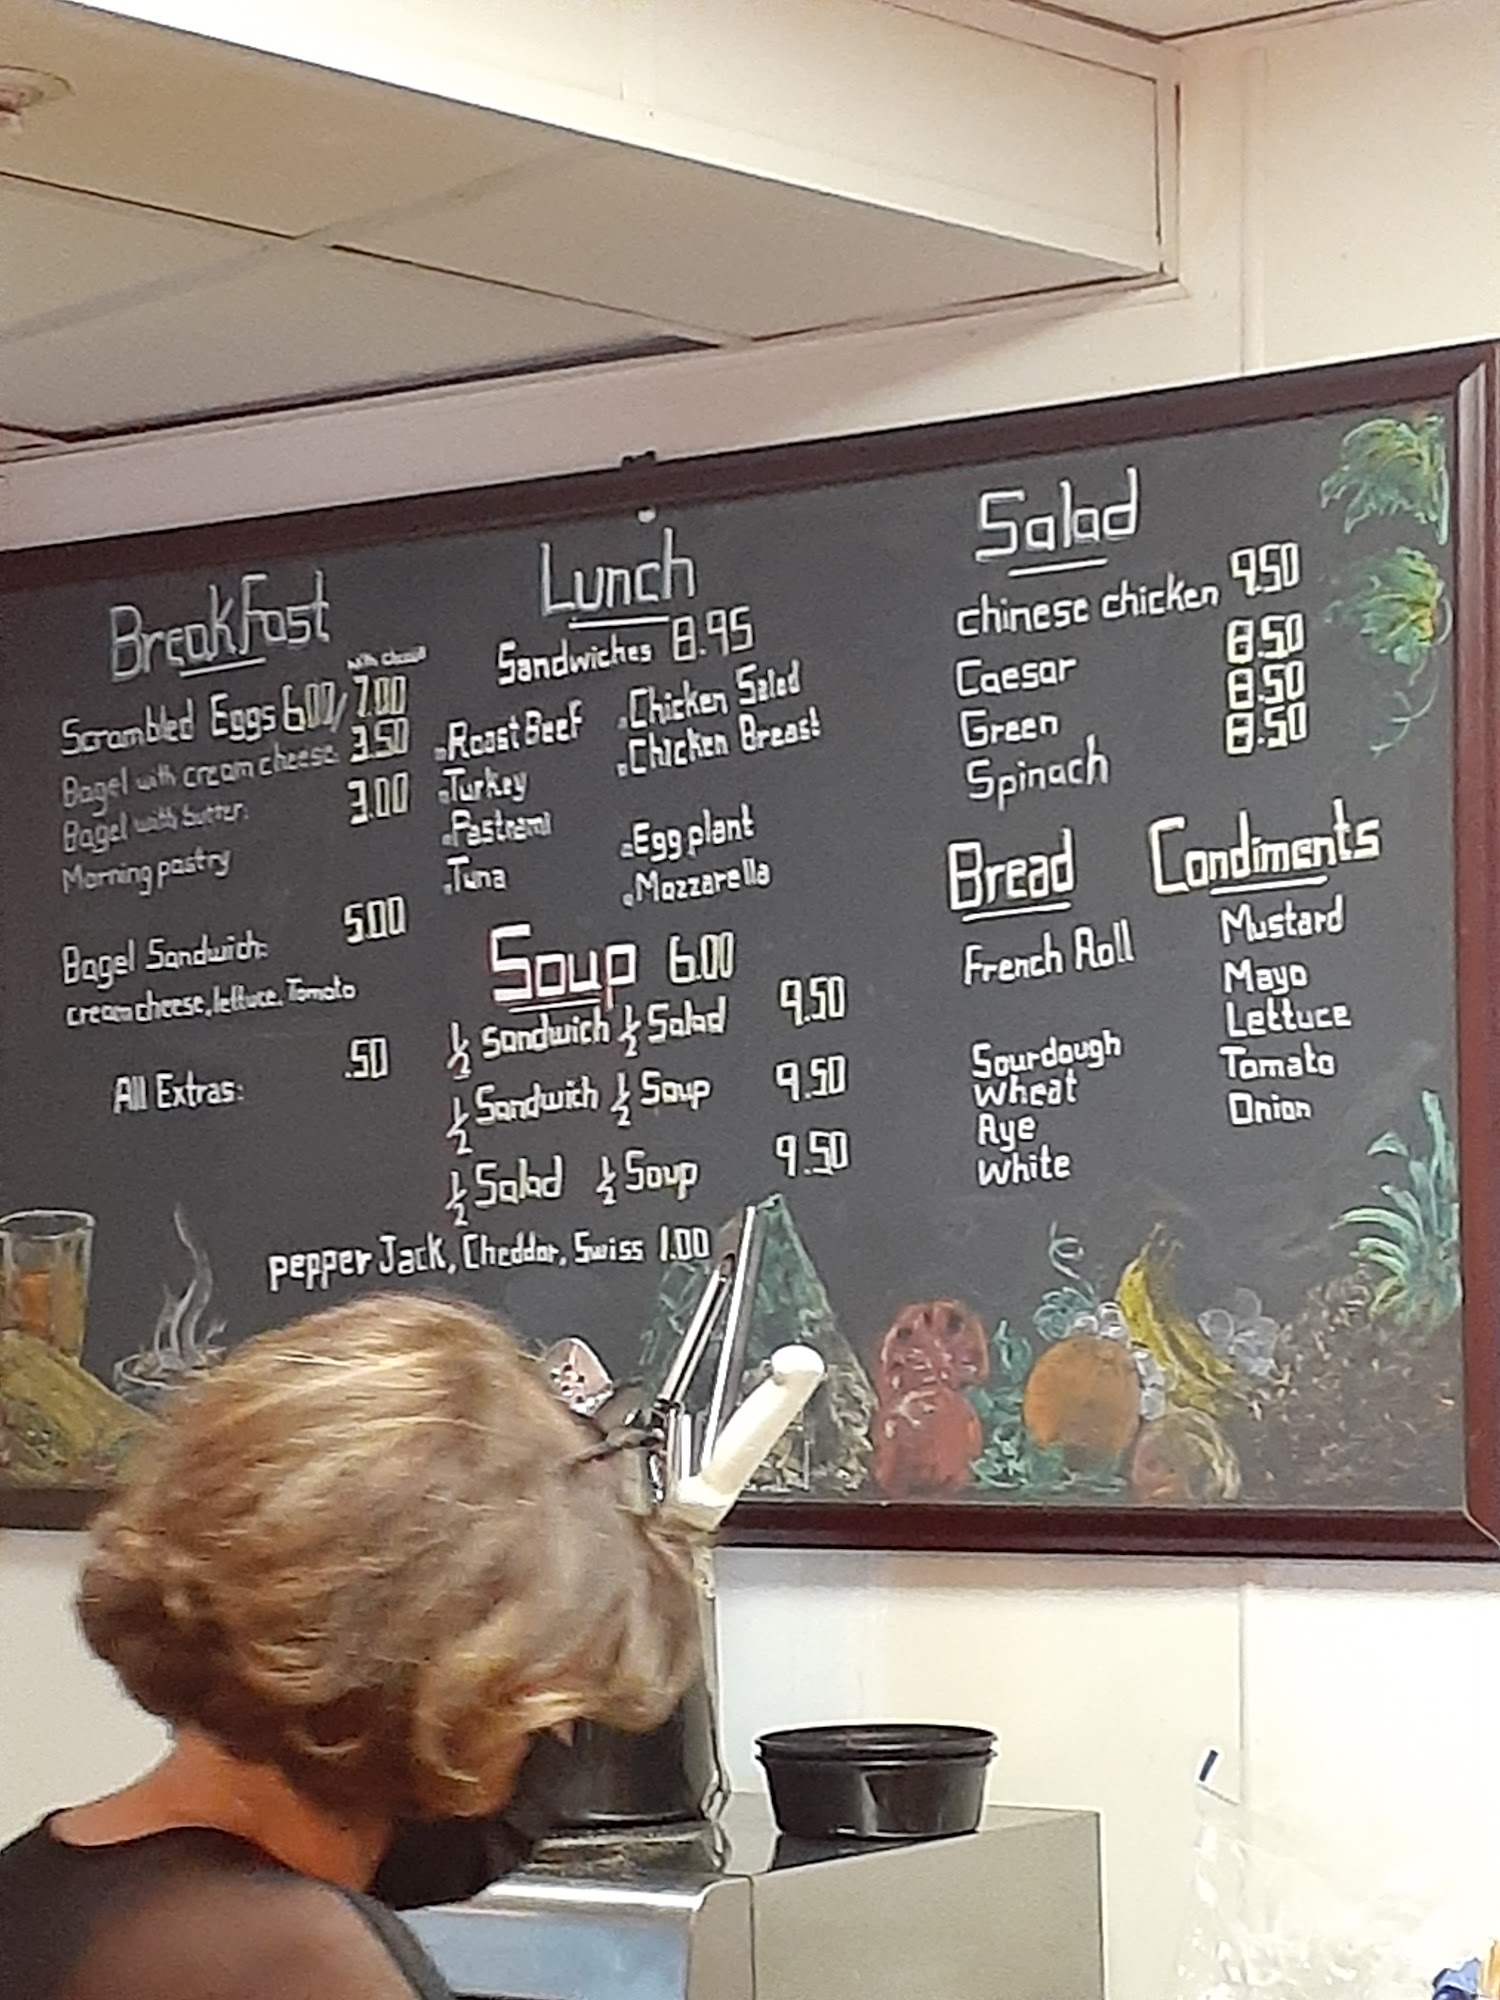 Breakfast
with cheese
Scrambled Eggs 6.00/7.00
Bagel with cream cheese: 3.50
Bagel with butter: 3.00
Morning pastry
Bagel Sandwich: 5.00
cream cheese, lettuce, Tomato
All Extras: .50
Lunch
Sandwiches 8.95
Roast Beef
Turkey
Pastrami
Tuna
Chicken Salad
Chicken Breast
Egg plant
Mozzarella
Soup 6.00
½ Sandwich ½ Salad 9.50
½ Sandwich ½ Soup 9.50
½ Salad ½ Soup 9.50
pepper Jack, Cheddar, Swiss 1.00
Salad
chinese chicken 9.50
Caesar 8.50
Green 8.50
Spinach 8.50
Bread
French Roll
Sourdough
Wheat
Rye
White
Condiments
Mustard
Mayo
Lettuce
Tomato
Onion